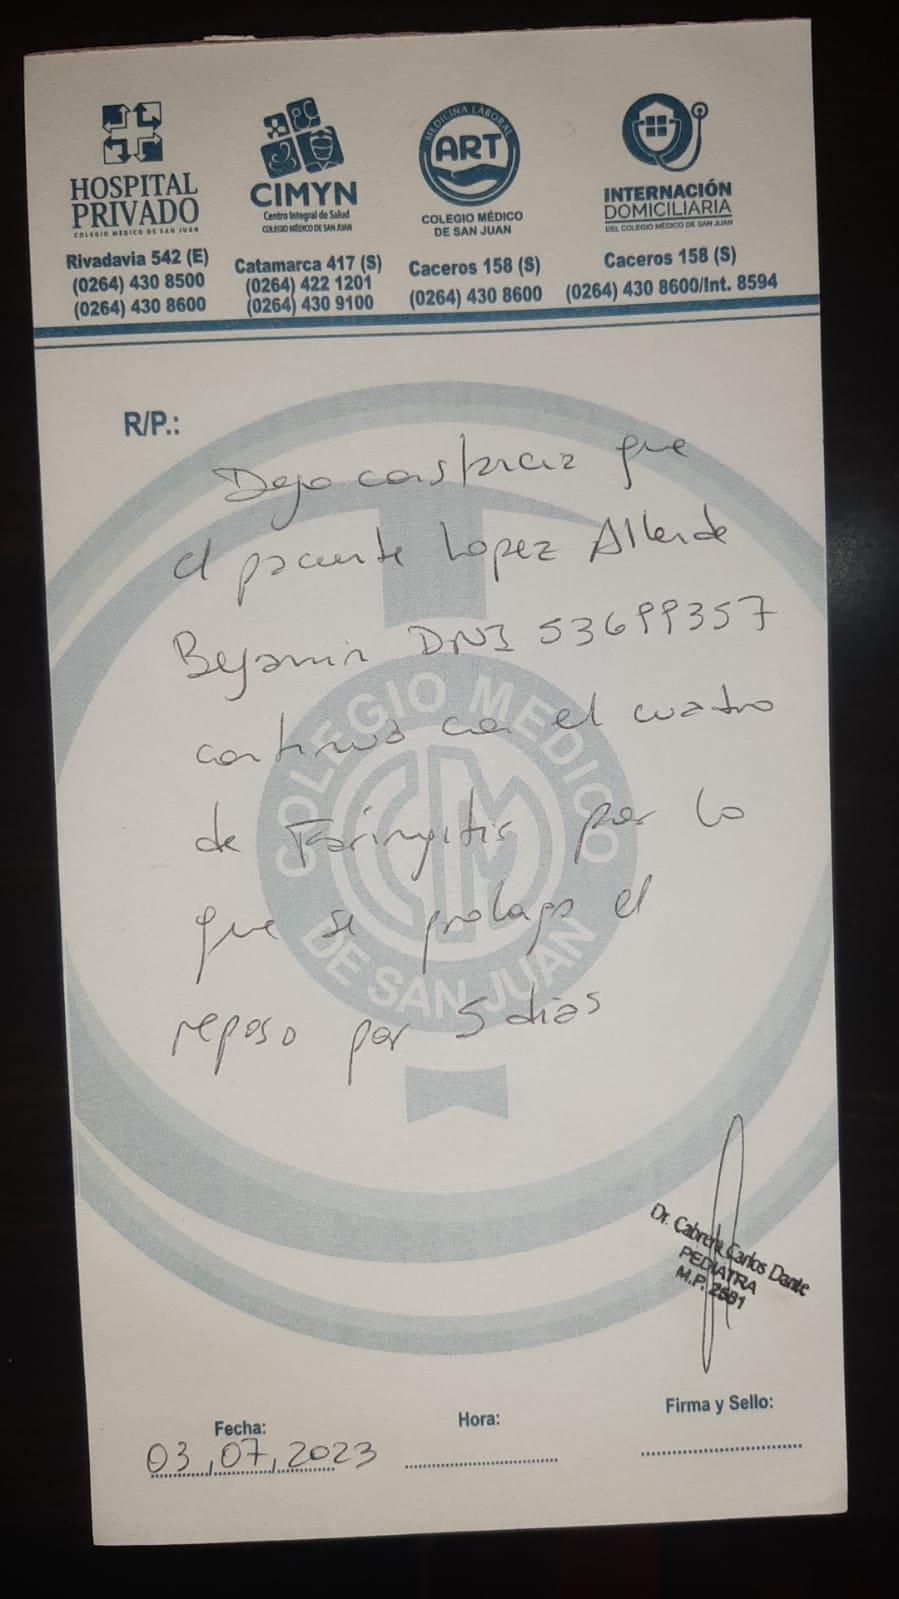 HOSPITAL
PRIVADO
COLEGIO MÉDICO DE SAN JUAN
Rivadavia 542 (E)
(0264) 430 8500
(0264) 430 8600
CIMYN
Centro Integral de Salud
COLEGIO MÉDICO DE SAN JUAN
Catamarca 417 (S)
(0264) 422 1201
(0264) 430 9100
MEDICINA LABORAL
ART
COLEGIO MÉDICO
DE SAN JUAN
Caceros 158 (S)
(0264) 430 8600
INTERNACIÓN
DOMICILIARIA
DEL COLEGIO MÉDICO DE SAN JUAN
Caceros 158 (S)
(0264) 430 8600/Int. 8594
R/P.:
Dejo constancia que
el paciente Lopez Allende
Bejamin DNI 53699357
continua con el cuatro
de Faringitis por lo
que se prolaga el
reposo por 5 dias
COLEGIO MEDICO
CM
DE SAN JUAN
Dr. Cabrera Carlos Dante
PEDIATRA
M.P.
Fecha:
03,07,2023
Hora:
Firma y Sello: